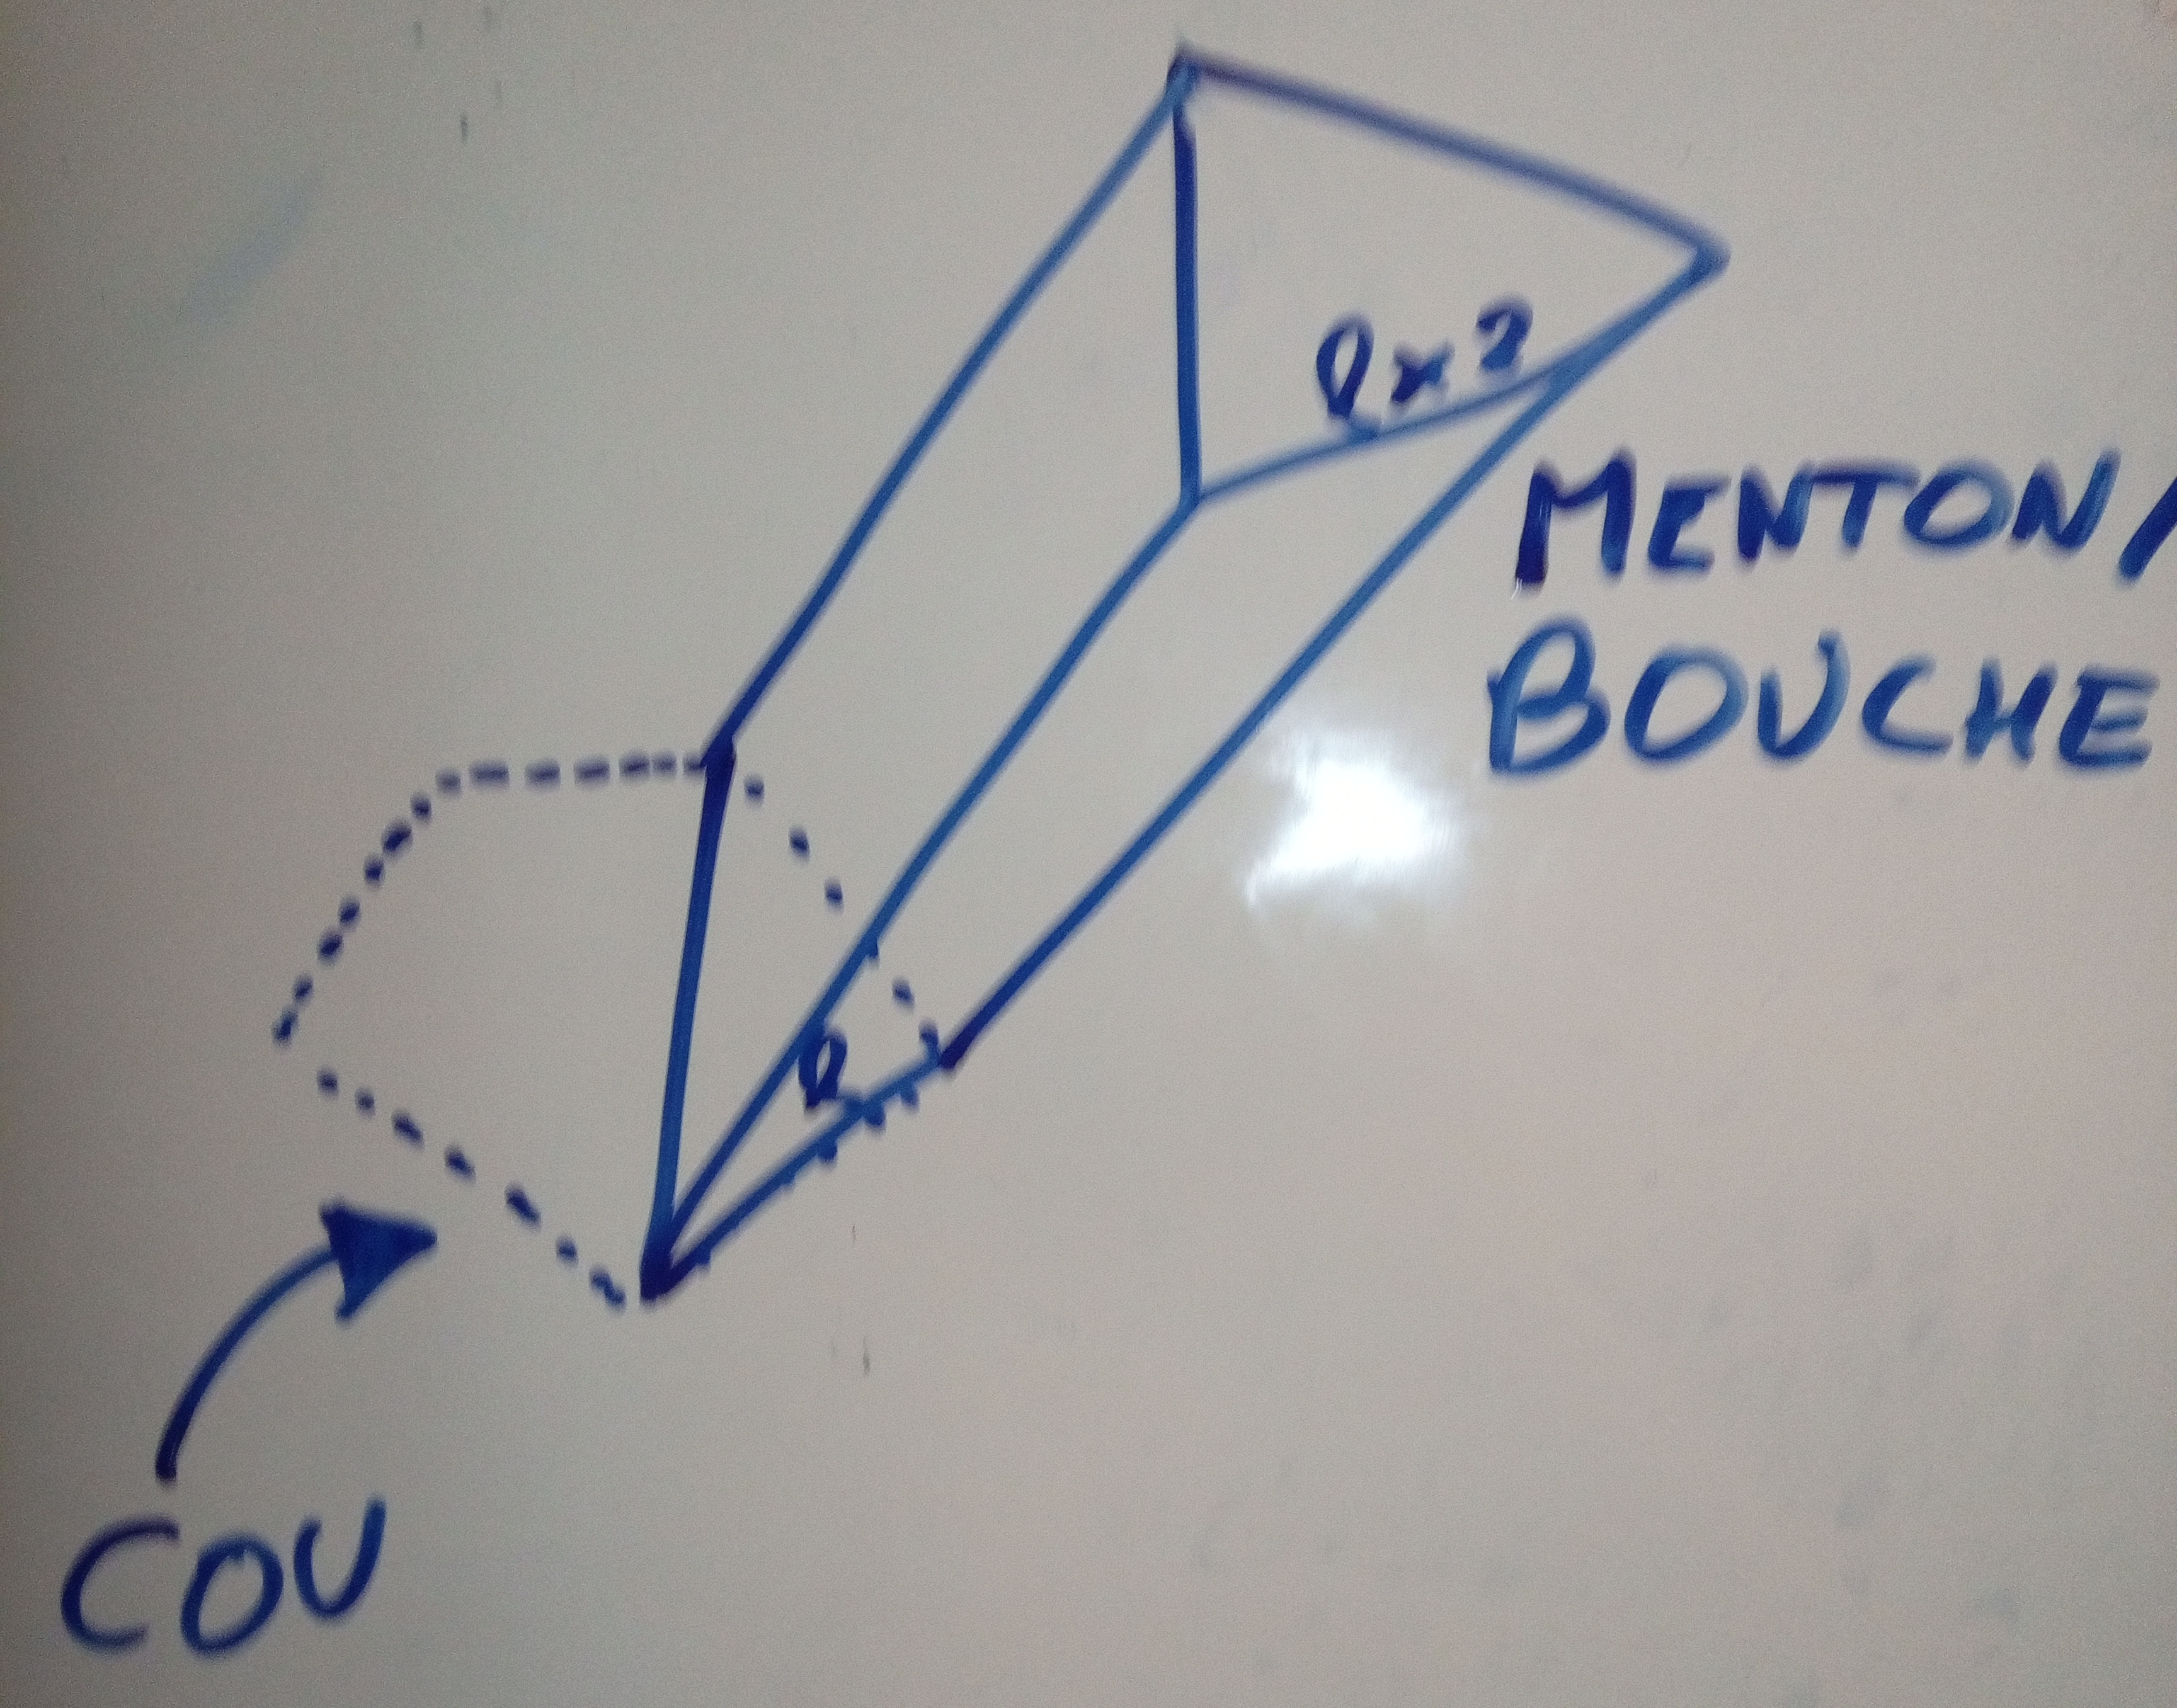 l x 2
MENTON/
BOUCHE
l
COU